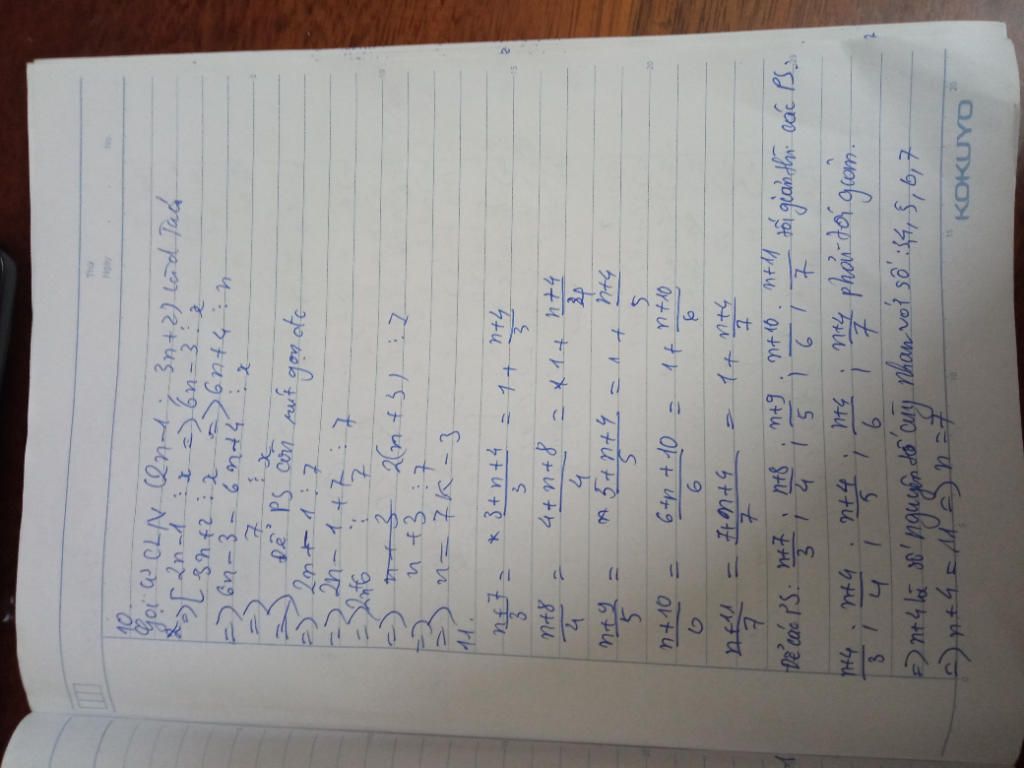 Thứ
Ngày No.
10.
Gọi ƯCLN (2n-1; 3n+2) là x
=> [ 2n-1 ⋮ x => 6n-3 ⋮ x
3n+2 ⋮ x => 6n+4 ⋮ x
=> 6n-3- 6n+4 ⋮ x
=> 7 ⋮ x
=> Để PS còn rút gọn đc
=> 2n-1 ⋮ 7
=> 2n-1+7 ⋮ 7
=> 2n+6 ⋮ 7
=> 2(n+3) ⋮ 7
=> n+3 ⋮ 7
=> n = 7K-3
11.
n+7/3 = 3+n+4/3 = 1+ n+4/3
n+8/4 = 4+n+8/4 = 1+ n+4
n+9/5 = 5+n+4/5 = 1+ n+4/5
n+10/6 = 6+n+10/6 = 1+ n+10/6
n+11/7 = 7+n+4/7 = 1+ n+4/7
Để các PS: n+7/3; n+8/4; n+9/5; n+10/6; n+11/7 tối giản thì các PS.
n+4/3; n+4/4; n+4/5; n+4/6; n+4/7 phải tối giản.
=> n+4 là số nguyên tố cùng nhau với số 3,4,5,6,7
=> n+4 = 11 => n=7
KOKUYO